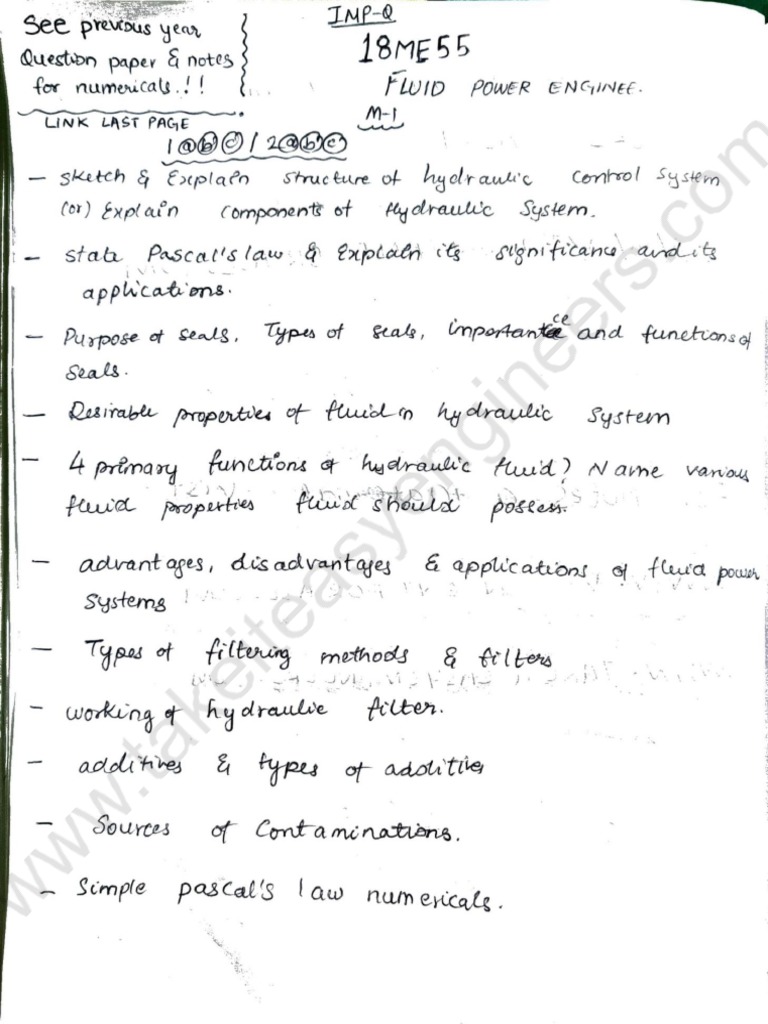 See previous year
Question paper & notes
for numericals.!!
LINK LAST PAGE
IMP-Q
18ME55
FLUID POWER ENGINEE.
M-1
1 a b c / 2 a b c
- Sketch & Explain structure of hydraulic control system
(or) Explain components of Hydraulic System.
- state Pascal's law & Explain its significance and its
applications.
- Purpose of seals, Types of seals, importance and functions of
seals.
- Desirable properties of fluid in hydraulic system
- 4 primary functions of hydraulic fluid? Name various
fluid properties fluid should possess.
- advantages, disadvantages & applications, of fluid power
systems
- Types of filtering methods & filters
- working of hydraulic filter.
- additives & types of additives
- Sources of Contaminations.
- Simple pascal's law numericals.
www.takeiteasyengineers.com